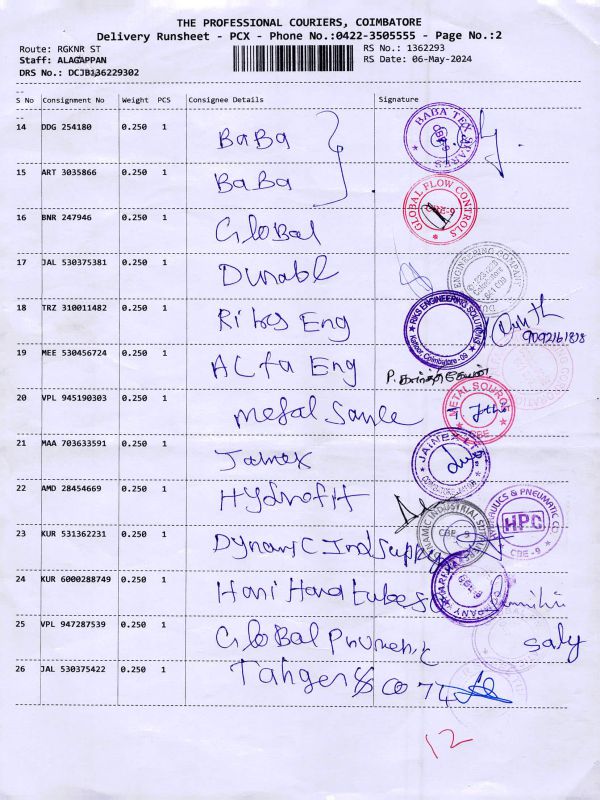 THE PROFESSIONAL COURIERS, COIMBATORE
Delivery Runsheet - PCX - Phone No.:0422-3505555 - Page No.:2
Route: RGKNR ST RS No.: 1362293
Staff: ALAGAPPAN RS Date: 06-May-2024
DRS No.: DCJB136229302
S No Consignment No Weight PCS Consignee Details Signature
14 DDG 254180 0.250 1 BaBa BABA TEX SPARES
15 ART 3035866 0.250 1 BaBa
16 BNR 247946 0.250 1 Global GLOBAL FLOW CONTROLS CBE-9
17 JAL 530375381 0.250 1 Durabl ENGINEERING COMPANY
18 TRZ 310011482 0.250 1 Eng RKS ENGINEERING SOLUTIONS Coimbatore - 09
9092161878
19 MEE 530456724 0.250 1 Alfa Eng P.
20 VPL 945190303 0.250 1 Metal METAL SOURCE CBE
21 MAA 703633591 0.250 1 Jainex JAINEX LTD.
22 AMD 28454669 0.250 1 HYDRAULICS & PNEUMATIC CO HPC CBE-9
23 KUR 531362231 0.250 1 Dynamic Ind Supply DYNAMIC INDUSTRIAL CBE - 9
24 KUR 6000288749 0.250 1 COMPANY
25 VPL 947287539 0.250 1 Global
26 JAL 530375422 0.250 1 & Co
12